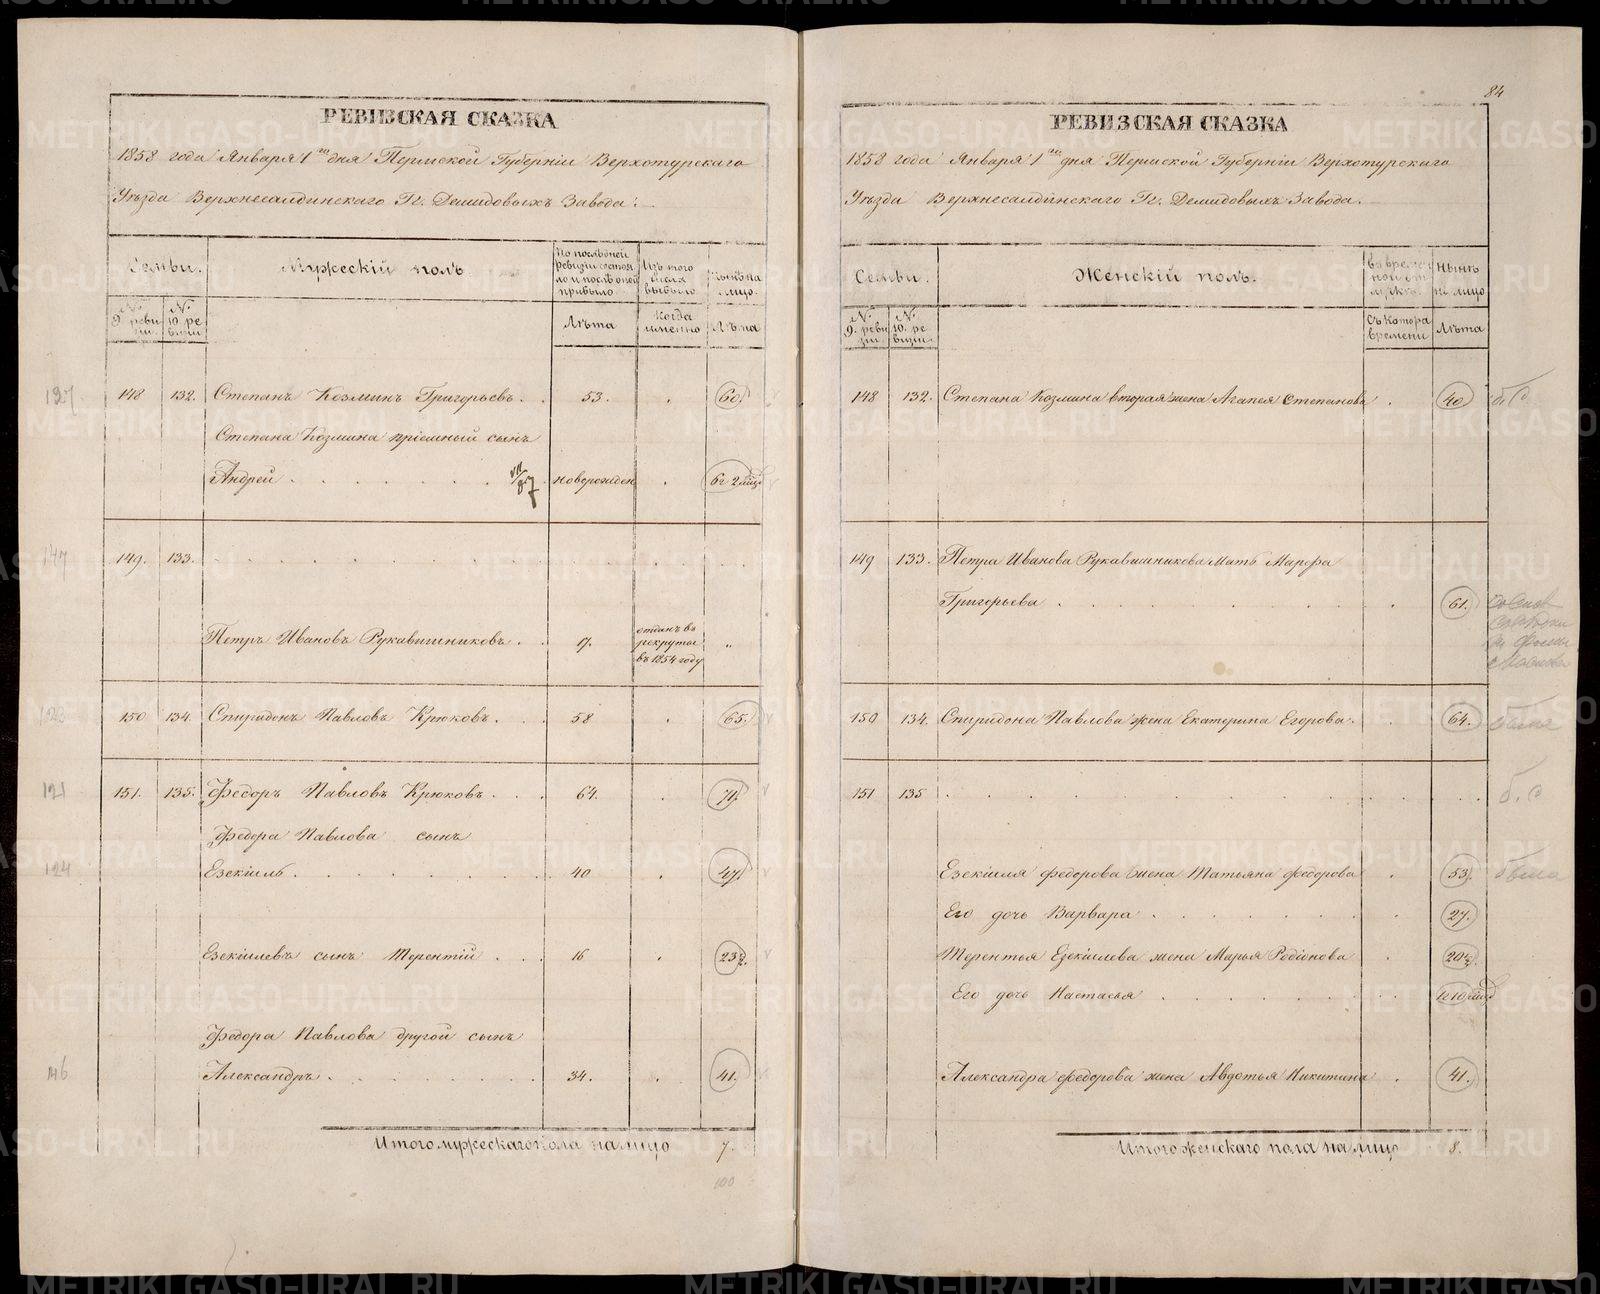 РЕВИЗСКАЯ СКАЗКА
1858 года Января 1го дня Пермской Губерніи Верхотурскаго
Уѣзда Верхнесалдинскаго Гг. Демидовыхъ Завода.
Семьи.
Мужескій полъ
По послѣдней ревизіи состояло и послѣ оной прибыло
Изъ того числа выбыло
Нынѣ на лицо.
№ 9 ревизіи.
№ 10 ревизіи
Лѣта
Когда именно
Лѣта
127
148 132. Степанъ Козминъ Григорьевъ. . 53. . 60.
Степана Козмина пріемный сынъ
Андрей . . . . . . . новорожден . 6г 2 мѣсц
147
149. 133.
Петръ Ивановъ Рукавишниковъ. . 17. отданъ въ рекруты въ 1854 году „
150 134. Спиридонъ Павловъ Крюковъ. . 58 . 65.
121
151. 135. Федоръ Павловъ Крюковъ. . . 64. . 71.
Федора Павлова сынъ
124
Езекіиль. . . . . . . . 40 . 47.
Езекіилевъ сынъ Терентій . . . 16 . 23½.
Федора Павлова другой сынъ
146
Александръ. . . . . . . 34. . 41.
Итого мужескаго пола на лицо 7.
100
84
РЕВИЗСКАЯ СКАЗКА
1858 года Января 1го дня Пермской Губерніи Верхотурскаго
Уѣзда Верхнесалдинскаго Гг. Демидовыхъ Завода.
Семьи.
Женскій полъ.
Нынѣ на лицо
№ 9. ревизіи
№ 10. ревизіи.
Съ котора времени
Лѣта
148 132. Степана Козмина вторая жена Агапея Степанова . 40
149 133. Петра Иванова Рукавишникова мать Марфа
Григорьева . . . . . . . . . 61.
150 134. Спиридона Павлова жена Екатерина Егорова. . 64.
151 135
Езекіиля Федорова жена Татьяна Федорова . 53.
была
Его дочь Варвара . . . . . . . 27.
Терентья Езекіилева жена Марья Родіонова . 20½.
Его дочь Настасья . . . . . . . 1г 10 мѣсц
Александра Федорова жена Авдотья Никитина . 41.
Итого женскаго пола на лицо 8.
METRIKI.GASO-URAL.RU